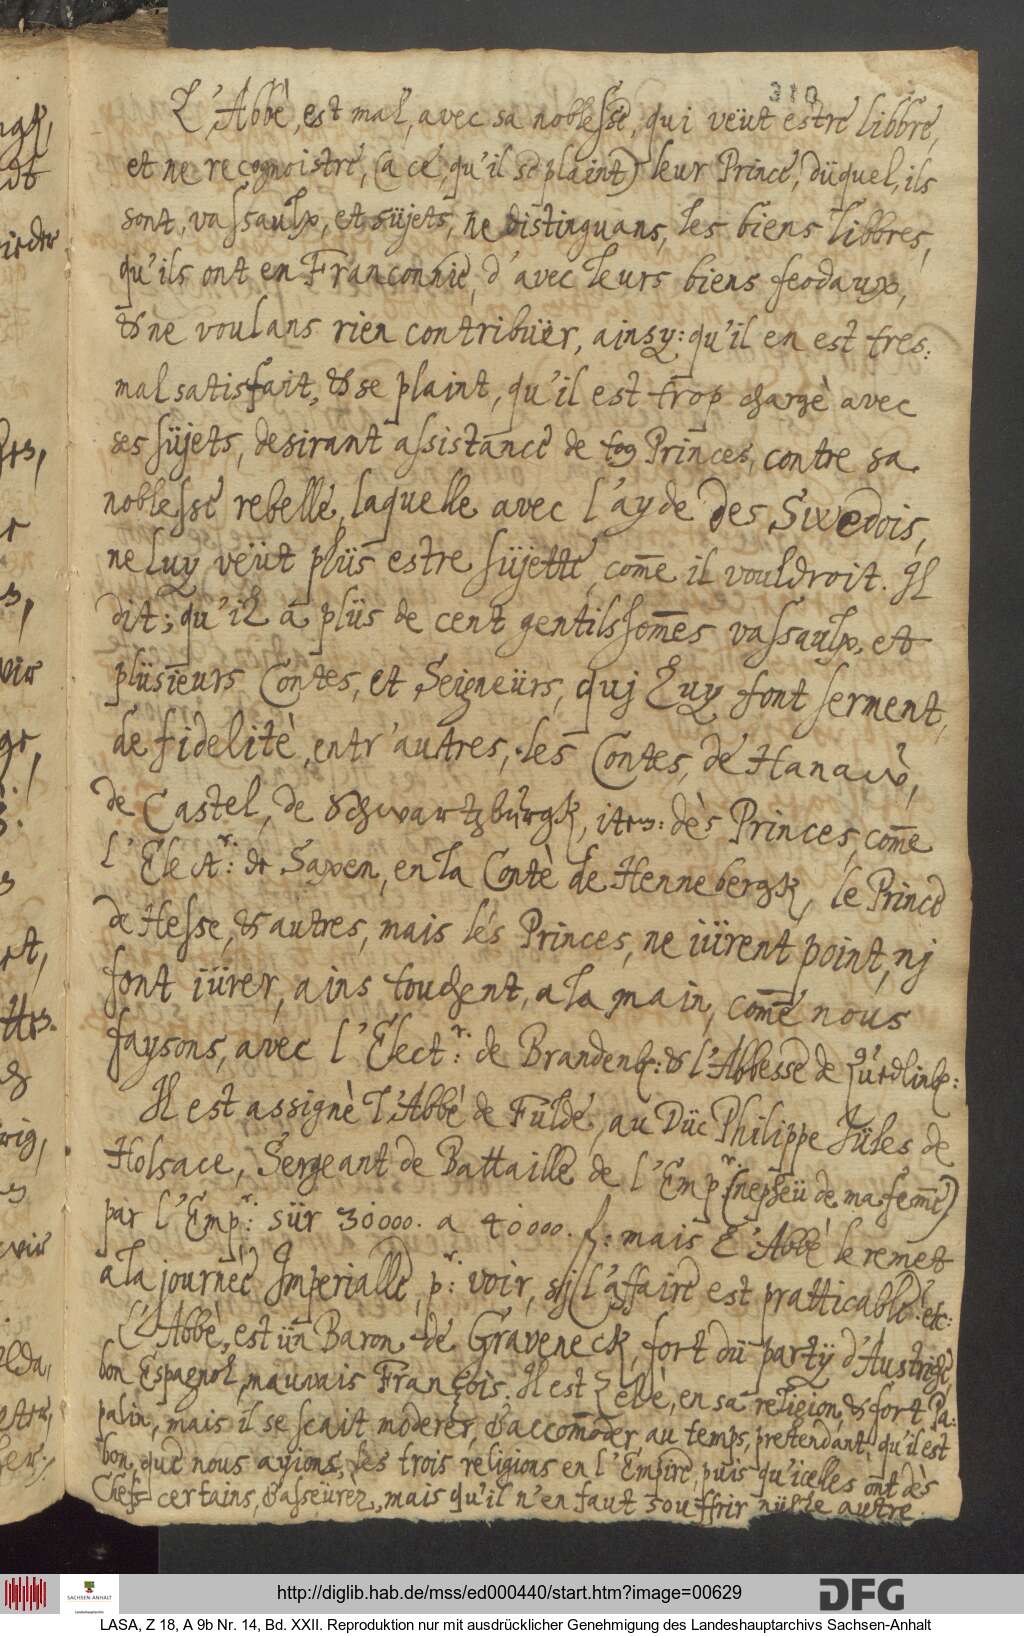 310
L'Abbè, est mal, avec sa noblesse, qui veüt estre libbre,
et ne recognoistre, (a ce, qu'il se plaint) leur Prince, düquel, ils
sont, vassaulx, et süjets, ne distinguans, les biens libbres,
qu'ils ont en Franconnie, d'avec leurs biens feodaux,
& ne voulans rien contribuër, ainsy: qu'il en est tres:
mal satisfait, & se plaint, qu'il est trop chargè avec
ses süjets, desirant assistance de Princes, contre sa
noblesse rebelle, laquelle avec l'ayde des Swedois,
ne luy veüt plüs estre süjette, com̄e il vouldroit. Il
dit; qu'il a plüs de cent gentilshom̄es vassaulx, et
plüsieurs Contes, et Seigneürs, quj Luy font serment,
de fidelitè, entr'autres, les Contes, de Hanaw,
de Castel, de Schwartzburgk, item: dès Princes, com̄e
l'Elect.r: de Saxen, en la Contè de Hennebergk, le Prince
de Hesse, & autres, mais lés Princes, ne iürent point, nj
font iürer, ains touchent, a la main, com̄e nous
faysons, avec l'Elect.r: de Brandenb: & l'Abbesse de Quedlinb:
Il est assignè l'Abbè de Fulde, au Düc Philippe Jüles de
Holsace, Sergeant de Battaille de l'Emp.r (nepheü de ma fem̄e)
par l'Emp.r: sür 30000. a 40000. f: mais L'Abbè le remet
a la journèe Imperialle, p.r: voir, sj l'affaire est pratticable. etc:
L'Abbè, est ün Baron de Graveneck, fort dü partÿ d'Austriche,
bon Espagnol, mauvais François. Il est Zelè, en sa religion, & fort Pa:
palin, mais il se scait moderer, & accom̄oder au temps, pretendant, qu'il est
bon, que nous ayions, les trois religions en l'Empire, puis qu'icelles ont dès
Chefs certains, & asseürez, mais qu'il n'en faut souffrir nülle autre.
http://diglib.hab.de/mss/ed000440/start.htm?image=00629
DFG
SACHSEN-ANHALT
Landeshauptarchiv
LASA, Z 18, A 9b Nr. 14, Bd. XXII. Reproduktion nur mit ausdrücklicher Genehmigung des Landeshauptarchivs Sachsen-Anhalt